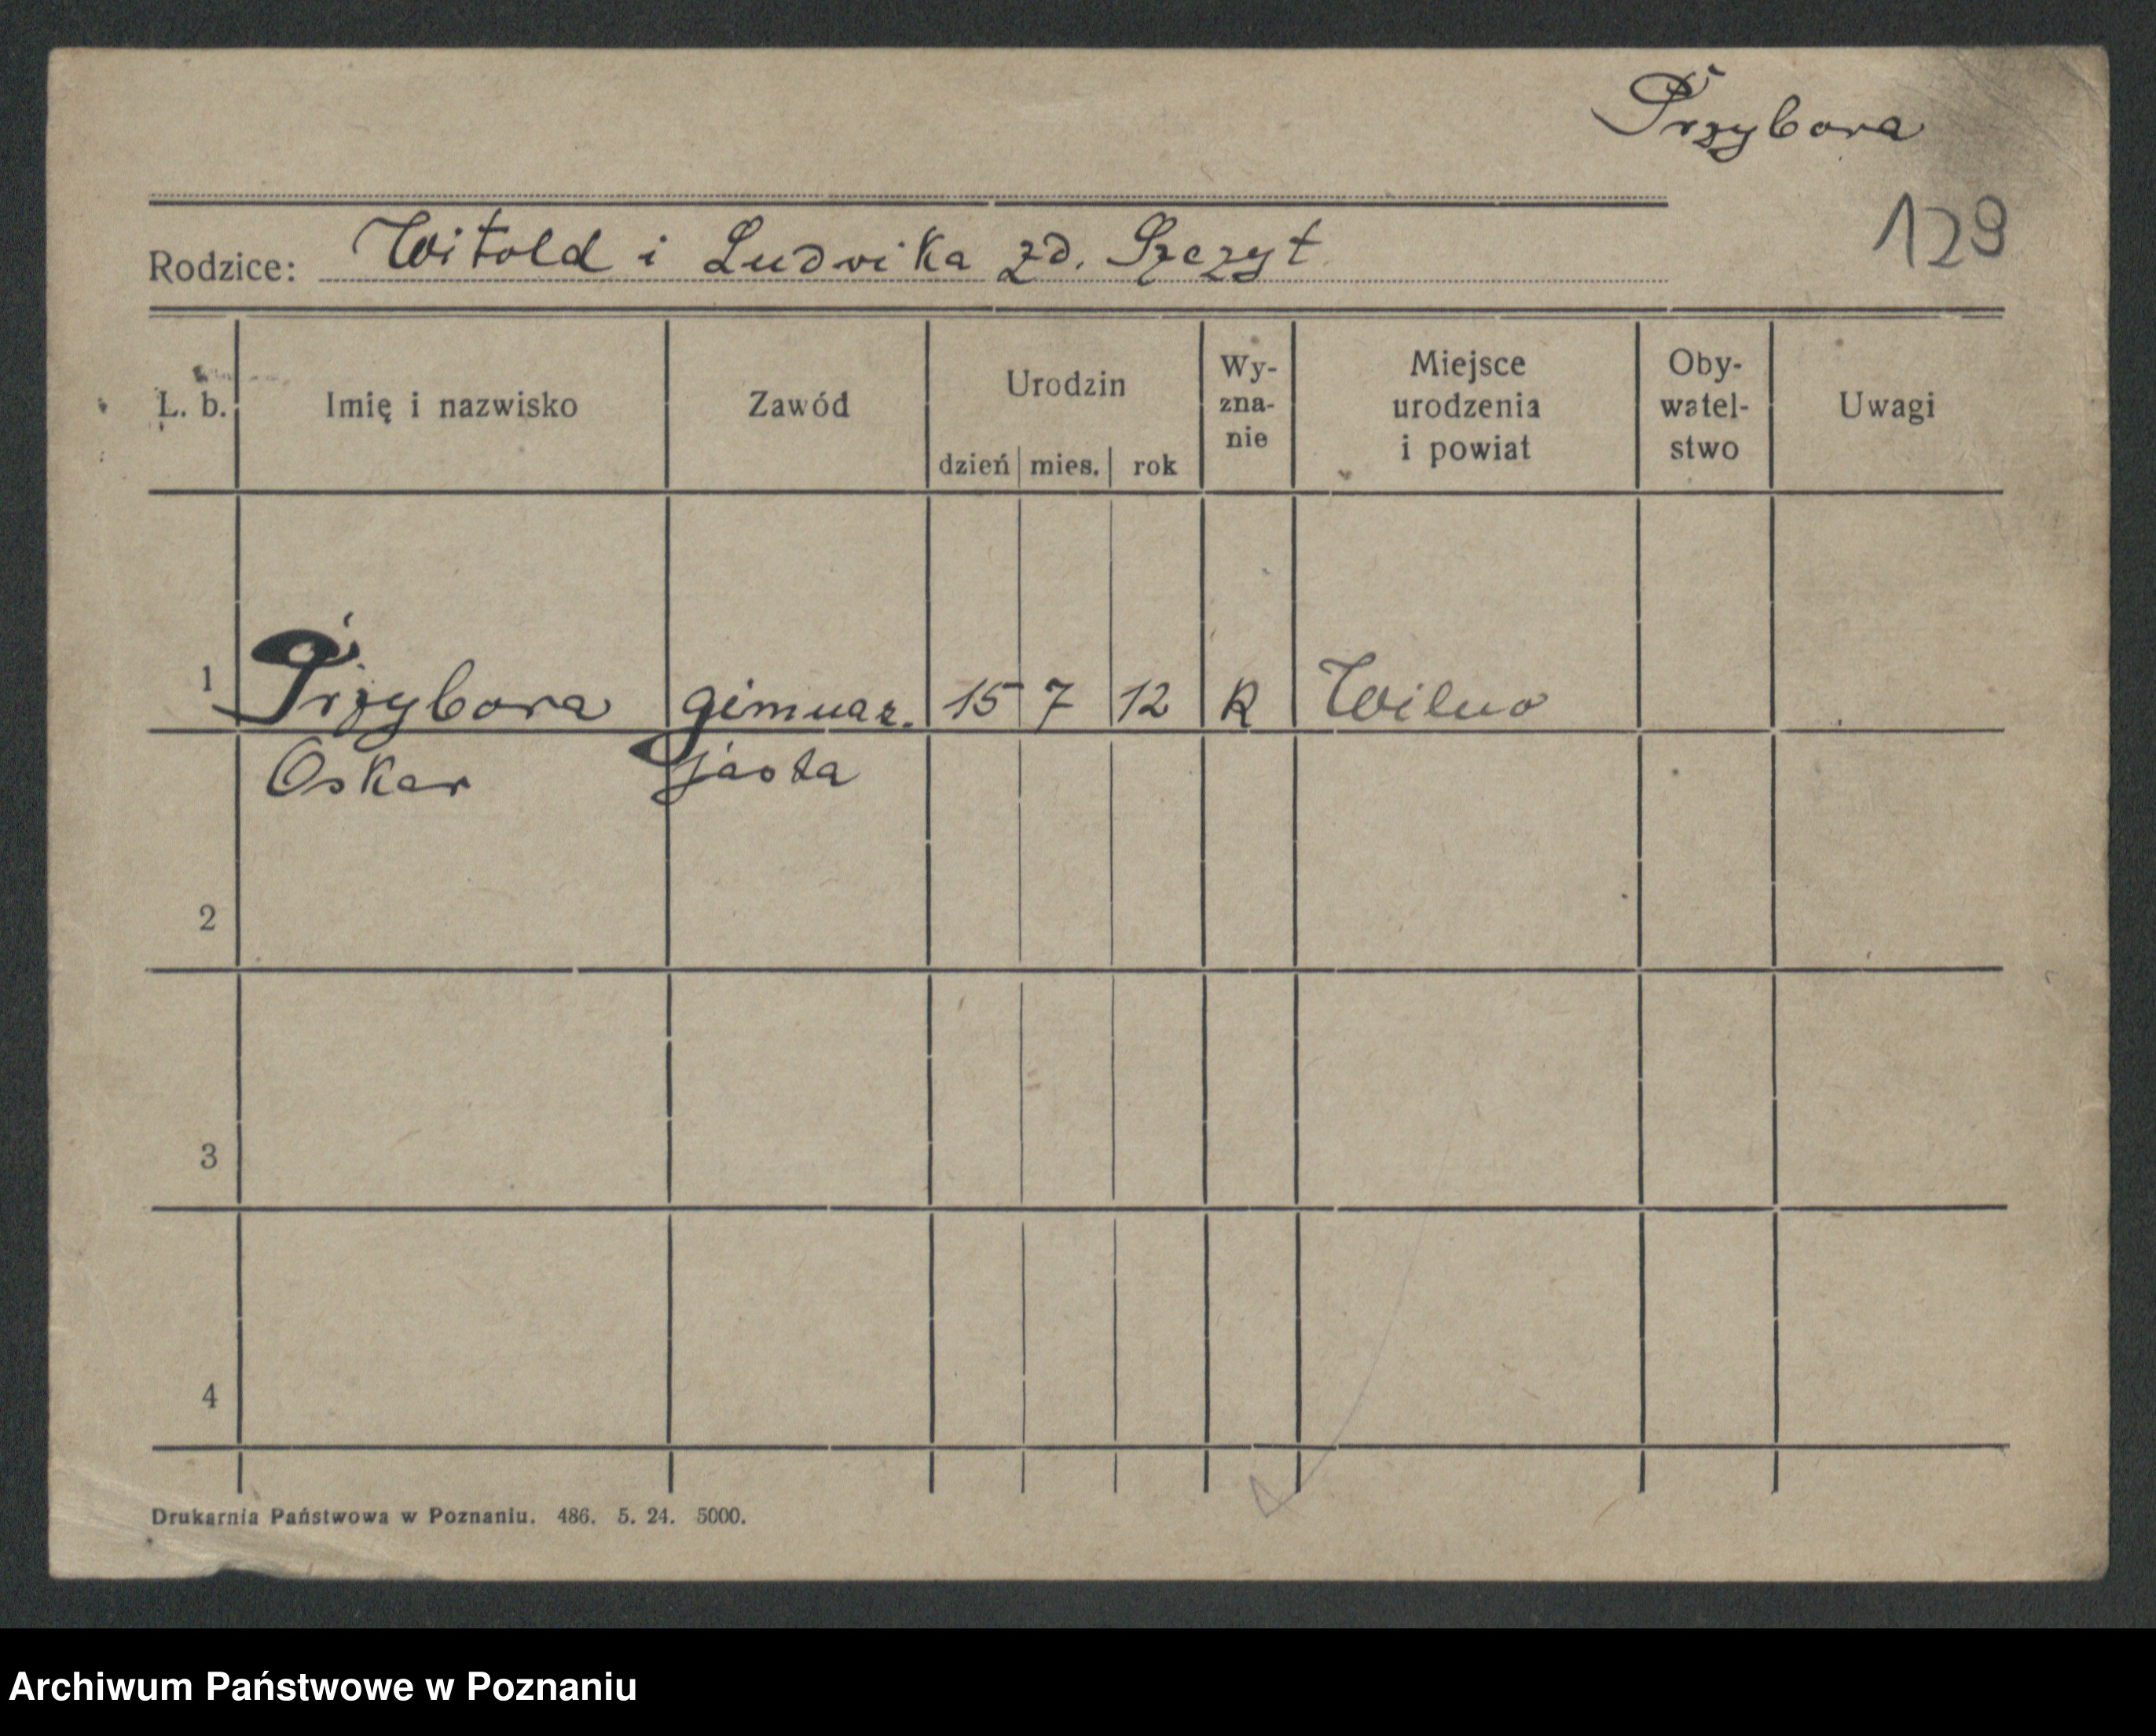 Przybora
129
Rodzice: Witold i Ludwika zd. Szczyt
L. b. Imię i nazwisko Zawód Urodzin dzień mies. rok Wy-zna-nie Miejsce urodzenia i powiat Oby-watel-stwo Uwagi
1 Przybora gimnaz. 15 7 12 R Wilno
Oskar jasta
2
3
4
Drukarnia Państwowa w Poznaniu. 486. 5. 24. 5000.
Archiwum Państwowe w Poznaniu